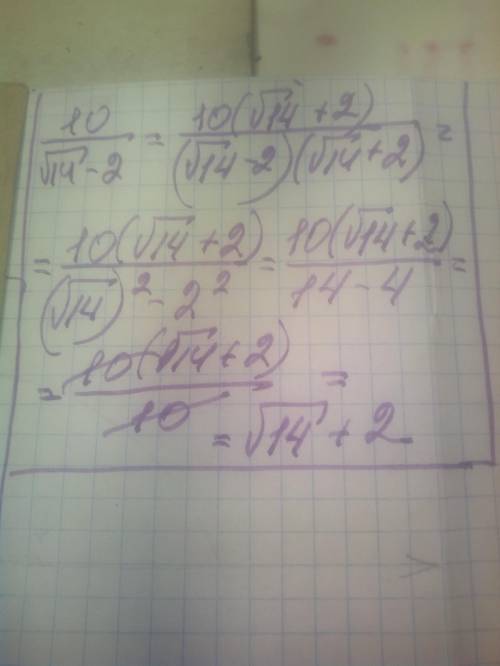 10/(√14 - 2) = 10(√14 + 2)/((√14 - 2)(√14 + 2)) =
= 10(√14 + 2)/((√14)² - 2²) = 10(√14 + 2)/(14 - 4) =
= 10(√14 + 2)/10 =
= √14 + 2